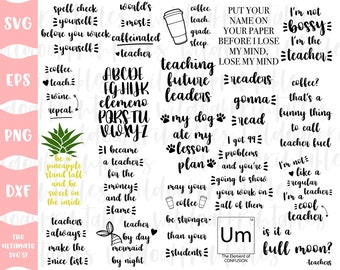 SVG
EPS
PNG
DXF
spell check
yourself
before you wreck
yourself
coffee.
teach.
wine.
repeat.
be a
pineapple
stand tall
and be
sweet on
the inside
teachers
always
make the
nice list!
world's
most
caffeinated
teacher
ABCDE
FGHIJK
elemeno
PQRTS
UVWXYZ
I became
a teacher
for the
money
and the
fame
teacher
by day
mermaid
by night
coffee.
teach.
grade.
sleep.
teaching
future
leaders
my dog
ate my
lesson
plan
may your
coffee
be stronger
than your
students
PUT YOUR
NAME ON
YOUR PAPER
BEFORE I LOSE
MY MIND,
LOSE MY MIND
readers
gonna
read
I got 99
problems
and you're
going to show
your work on
all of them
Um
The Element of
CONFUSION
I'm not
bossy
I'm the
teacher
coffee?
that's a
funny thing
to call
teacher fuel
I'm not
like a
regular
teacher
I'm a
cool
teacher
is it a
full moon?
teachers